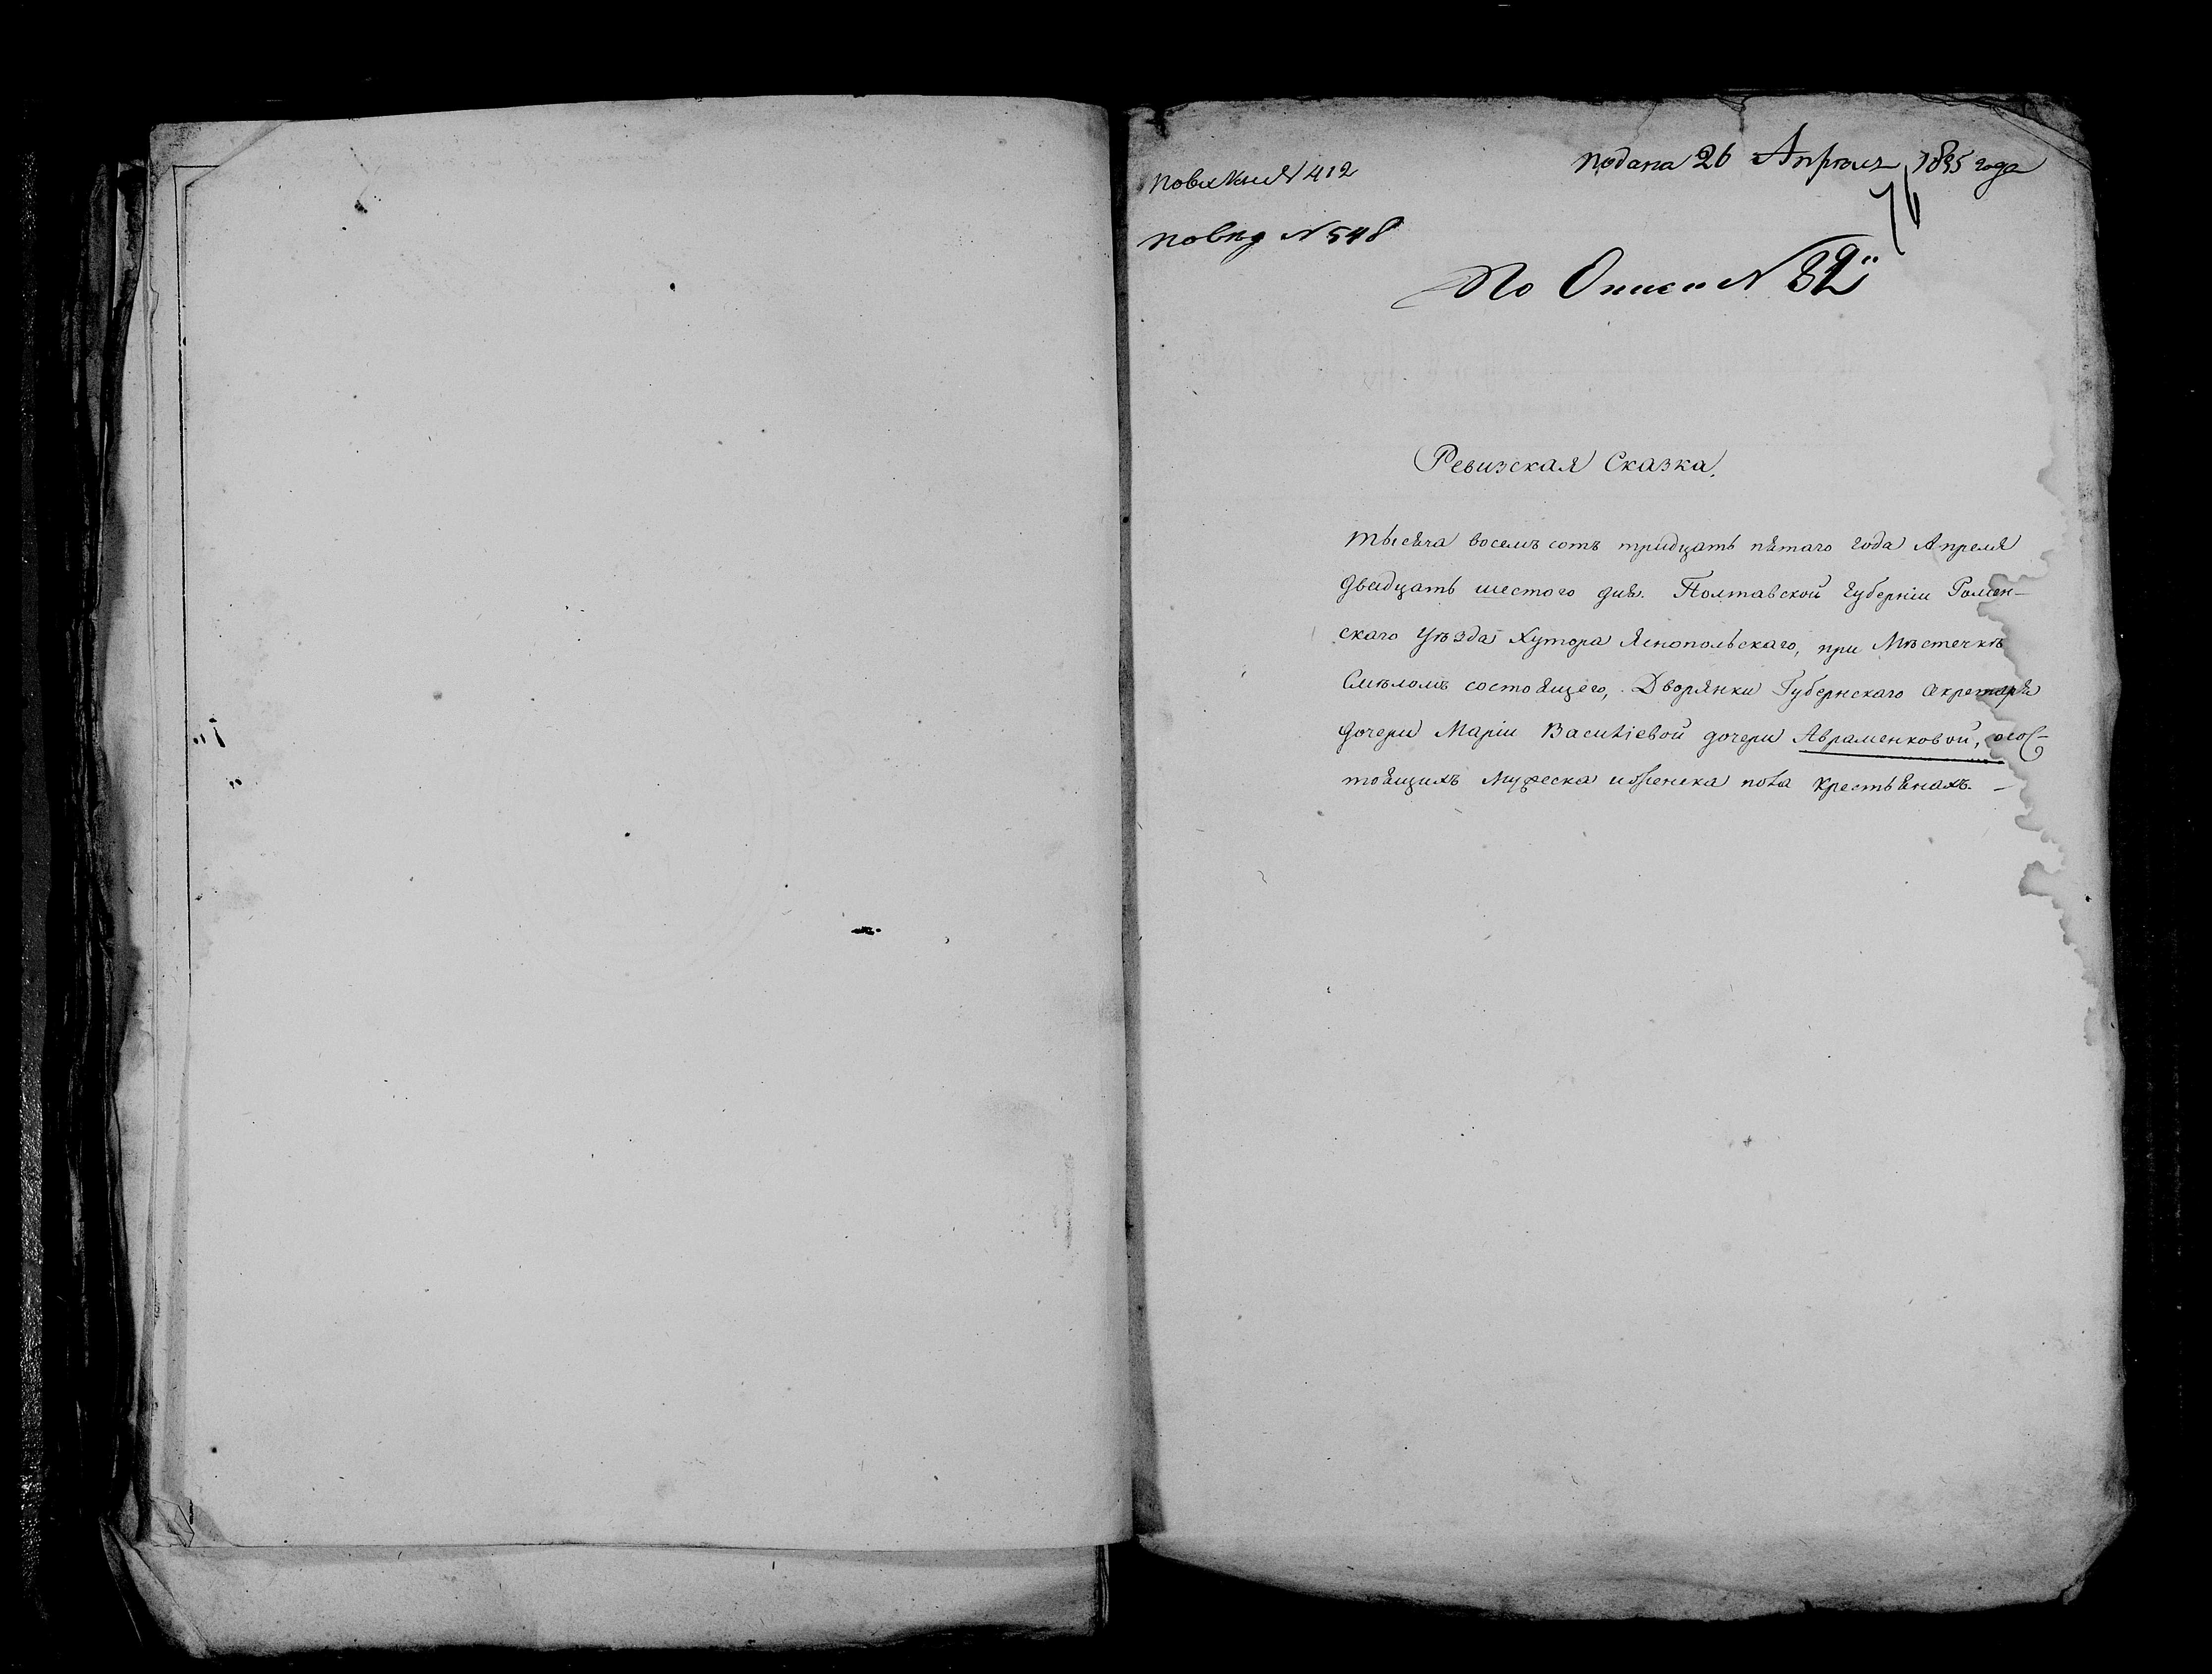 подана 26 Апреля 1835 года
N 412
N 548
По Описи N
Ревизская Сказка,
тысяча восемъ сотъ тридцать пятаго года Апреля
двадцать шестого дня. Полтавской губерніи Ромен-
скаго уѣзда Хутора Яснопольскаго, при Мѣстечкѣ
Смѣломъ состоящего, Дворянки Губернскаго секретаря
дочери Маріи Василіевой дочери Авраменковой, о сос-
тоящихъ мужеска и женска пола крестьянахъ. –